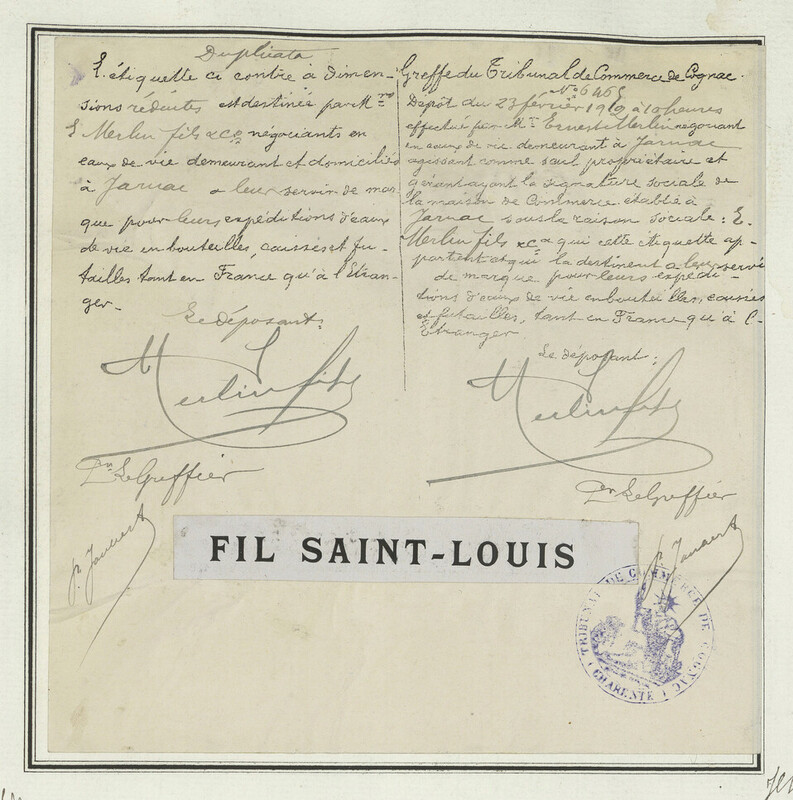 Duplicata
L'étiquette ci contre à dimen-
sions réduites est destinée par M.rs
E Merlin fils & Co négociants en
eaux de vie demeurant et domiciliés
à Jarnac a leur servir de mar
que pour leurs expéditions d'eaux
de vie en bouteilles, caisses et fu-
tailles tant en France qu'à l'Etran-
ger.
Le déposant:
Merlin fils
Pr Le Greffier
Greffe du Tribunal de Commerce de Cognac.
No 6465
Dépôt du 23 février 1919 à 10 heures
effectué par M.r Ernest Merlin négociant
en eaux de vie demeurant à Jarnac
agissant comme seul propriétaire et
gérant ayant la signature sociale de
la maison de Commerce établie à
Jarnac sous la raison sociale: E.
Merlin fils & Co qui cette étiquette ap-
partient et qui la destinent a leur servi
de marque pour leurs expédi-
tions d'eaux de vie en bouteilles, caisses
et futailles, tant en France qu'à l'-
Etranger
Le déposant:
Merlin fils
Pr Le Greffier
FIL SAINT-LOUIS
TRIBUNAL DE COMMERCE DE COGNAC
(CHARENTE)